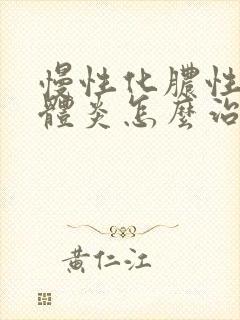 慢性化膿性
體炎怎麼治
黃仁江